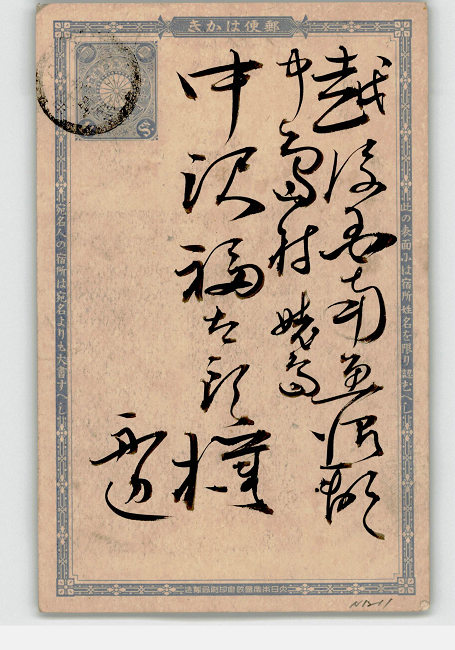 郵便はかき
此の表面には宿所姓名を限り認むへし
越後国南魚沼郡
中島村 姥島
中沢福太郎様
宛名人の宿所は宛名よりも大書すへし
大日本帝國政府印刷局製造
N1211